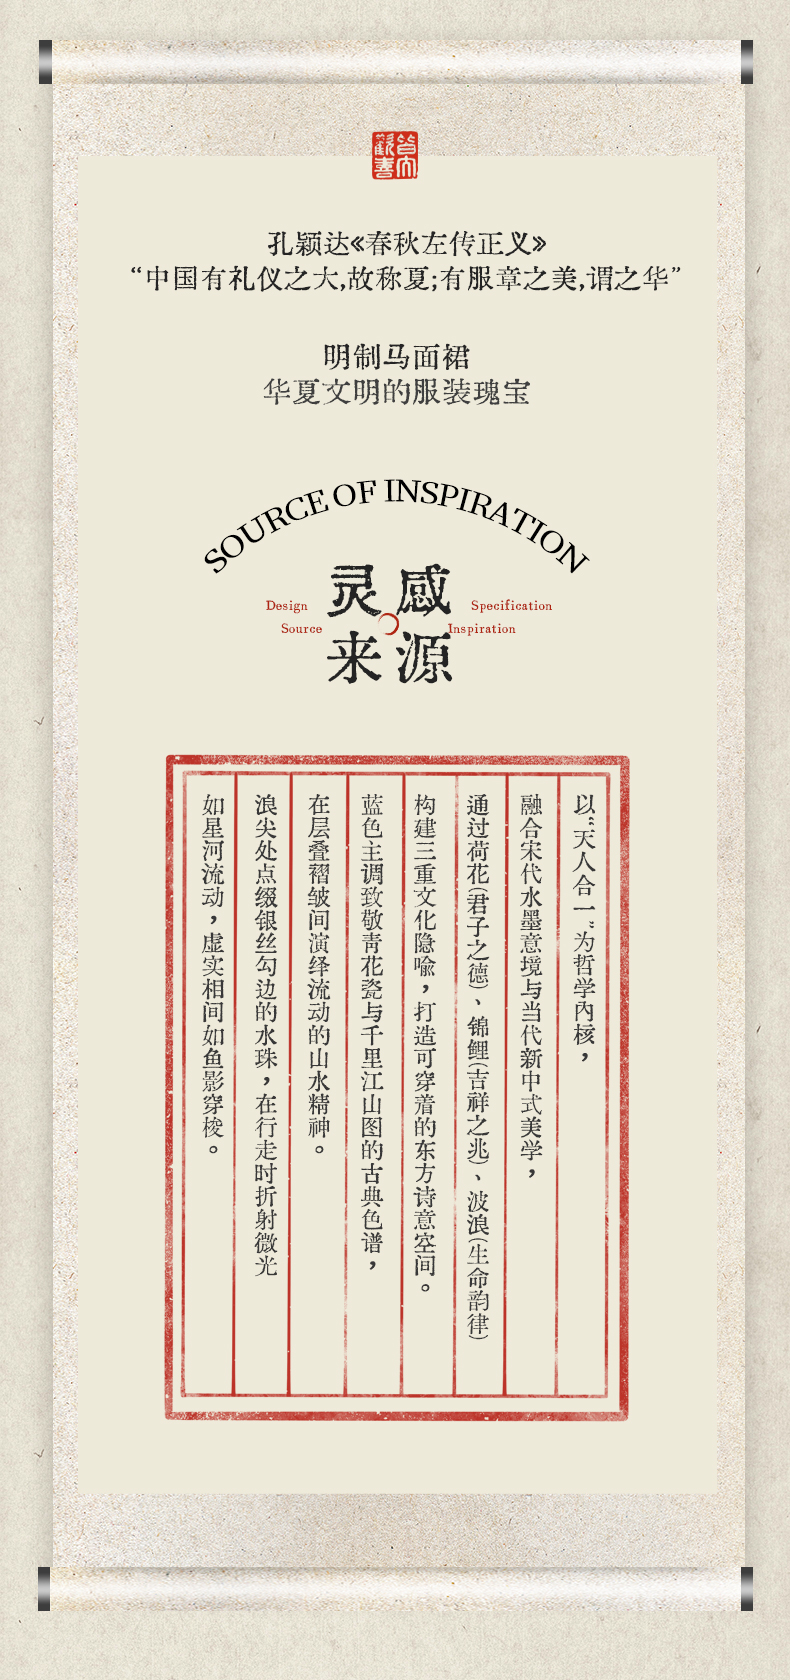 孔颖达《春秋左传正义》
“中国有礼仪之大,故称夏;有服章之美,谓之华”
明制马面裙
华夏文明的服装瑰宝
SOURCE OF INSPIRATION
灵感
来源
Design
Source
Specification
Inspiration
以“天人合一”为哲学内核，
融合宋代水墨意境与当代新中式美学，
通过荷花(君子之德)、锦鲤(吉祥之兆)、波浪(生命韵律)
构建三重文化隐喻，打造可穿着的东方诗意空间。
蓝色主调致敬青花瓷与千里江山图的古典色谱，
在层叠褶皱间演绎流动的山水精神。
浪尖处点缀银丝勾边的水珠，在行走时折射微光
如星河流动，虚实相间如鱼影穿梭。